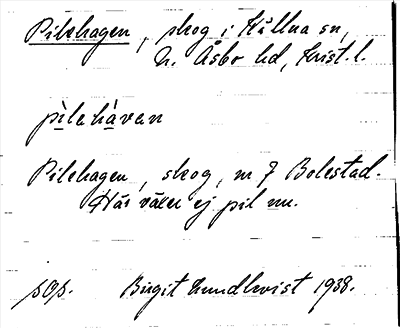 Pilehagen, skog i Källna sn,
N. Åsbo hd, Krist. l.
pìlehàvan
Pilehagen, skog, nr 7 Bolestad.
Här växer ej pil nu.
sOp. Birgit Lundkvist 1938.